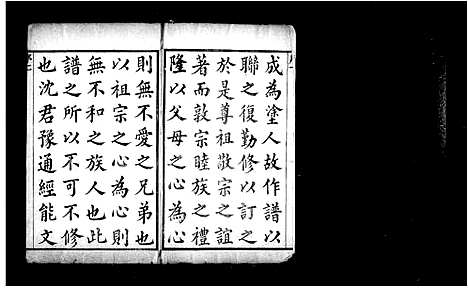 成為塗人故作譜以
聯之復勤修以訂之
於是尊祖敬宗之誼
著而敦宗睦族之禮
隆以父母之心為心
則無不愛之兄弟也
以祖宗之心為心則
無不和之族人也此
譜之所以不可不修
也沈君豫通經能文